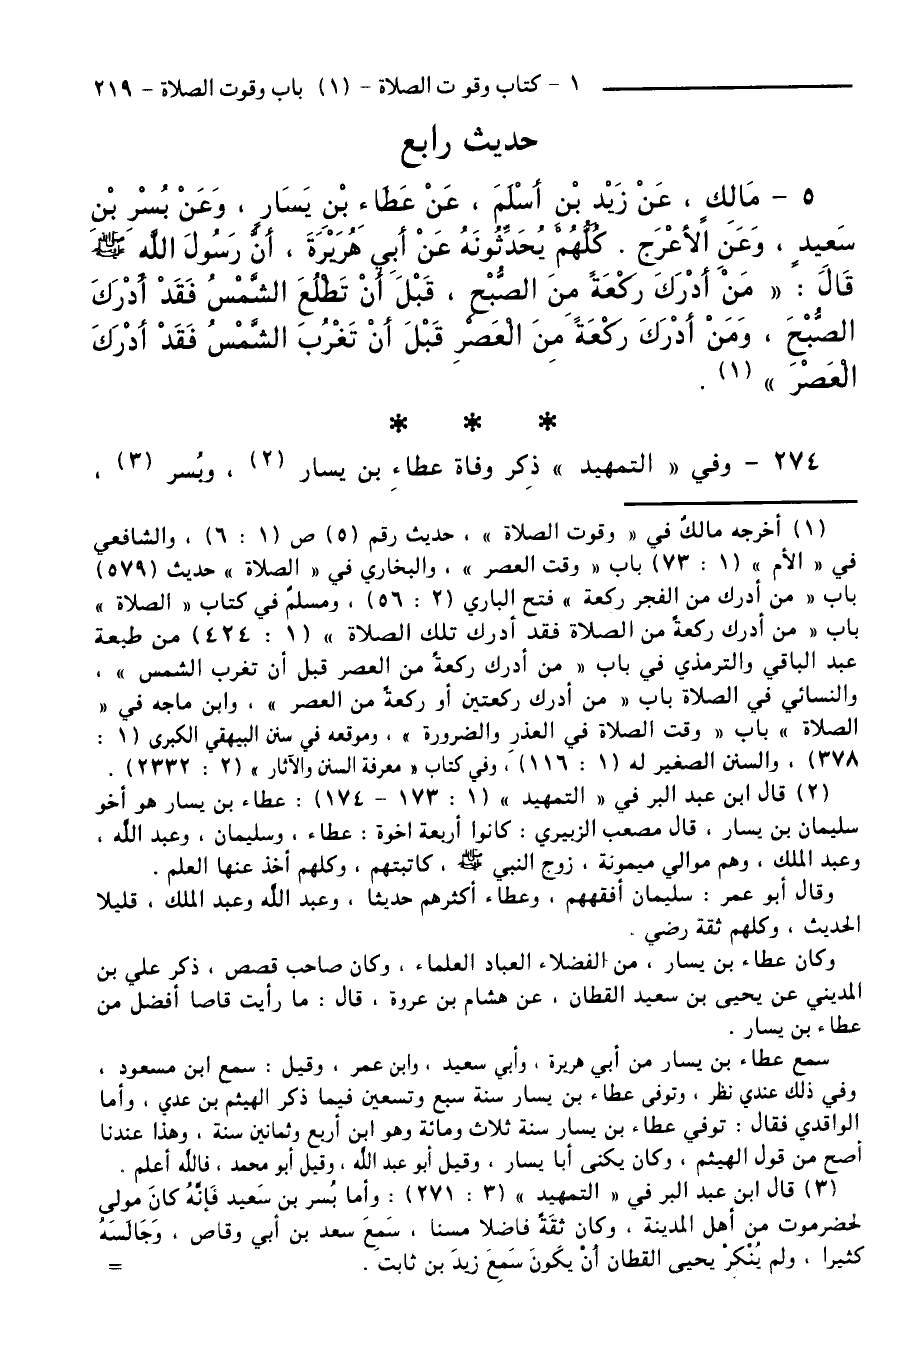 ١ - كتاب وقو ت الصلاة - (١) باب وقوت الصلاة - ٢١٩
حديث رابع
٥ - مَالك ، عَنْ زَيْد بْنِ أَسْلَمَ ، عَنْ عَطَاءِ بْنِ يَسَارٍ ، وَعَنْ بُسْرِ بْنِ
سَعيدٍ ، وَعَنِ الأَعْرَجِ . كُلُّهُمْ يُحَدِّثُونَهُ عَنْ أَبِي هُرَيْرَةَ ، أَنَّ رَسُولَ اللَّهِ ﷺ
قَالَ : « مَنْ أَدْرَكَ رَكْعَةً مِنَ الصُّبْحِ ، قَبْلَ أَنْ تَطْلُعَ الشَّمْسُ فَقَدْ أَدْرَكَ
الصُّبْحَ ، وَمَنْ أَدْرَكَ رَكْعَةً مِنَ الْعَصْرِ قَبْلَ أَنْ تَغْرُبَ الشَّمْسُ فَقَدْ أَدْرَكَ
الْعَصْرَ » (١) .
* * *
٢٧٤ - وفي « التمهيد » ذكر وفاة عطاءِ بن يسار (٢) ، وبُسر (٣) ،
(١) أخرجه مالكٌ في « وقوت الصلاة » ، حديث رقم (٥) ص (١ : ٦) ، والشافعي
في « الأم » (١ : ٧٣) باب « وقت العصر » ، والبخاري في « الصلاة » حديث (٥٧٩)
باب « من أدرك من الفجر ركعة » فتح الباري (٢ : ٥٦) ، ومسلمٌ في كتاب « الصلاة »
باب « من أدرك ركعةً من الصلاة فقد أدرك تلك الصلاة » (١ : ٤٢٤) من طبعة
عبد الباقي والترمذي في باب « من أدرك ركعةً من العصر قبل أن تغرب الشمس » ،
والنسائي في الصلاة باب « من أدرك ركعتين أو ركعةً من العصر » ، وابن ماجه في «
الصلاة » باب « وقت الصلاة في العذرِ والضرورة » ، وموقعه في سنن البيهقي الكبرى (١ :
٣٧٨) ، والسنن الصغير له (١ : ١١٦) ، وفي كتاب « معرفة السنن والآثار » (٢ : ٢٣٣٢) .
(٢) قال ابن عبد البر في « التمهيد » (١ : ١٧٣ - ١٧٤) : عطاء بن يسار هو أخو
سليمان بن يسار ، قال مصعب الزبيري : كانوا أربعة اخوة : عطاء ، وسليمان ، وعبد اللَّه ،
وعبد الملك ، وهم موالي ميمونة ، زوج النبي ﷺ ، كاتبتهم ، وكلهم أخذ عنها العلم .
وقال أبو عمر : سليمان أفقههم ، وعطاء أكثرهم حديثا ، وعبد اللَّه وعبد الملك ، قليلا
الحديث ، وكلهم ثقة رضي .
وكان عطاء بن يسار ، من الفضلاء العباد العلماء ، وكان صاحب قصص ، ذكر علي بن
المديني عن يحيى بن سعيد القطان ، عن هشام بن عروة ، قال : ما رأيت قاصا أفضل من
عطاء بن يسار .
سمع عطاء بن يسار من أبي هريرة ، وأبي سعيد ، وابن عمر ، وقيل : سمع ابن مسعود ،
وفي ذلك عندي نظر ، وتوفى عطاء بن يسار سنة سبع وتسعين فيما ذكر الهيثم بن عدي ، وأما
الواقدي فقال : توفي عطاء بن يسار سنة ثلاث ومائة وهو ابن أربع وثمانين سنة ، وهذا عندنا
أصح من قول الهيثم ، وكان يكنى أبا يسار ، وقيل أبو عبد اللَّه ، وقيل أبو محمد ، فاللَّه أعلم .
(٣) قال ابن عبد البر في « التمهيد » (٣ : ٢٧١) : وأما بُسر بن سَعيد فَإِنَّهُ كانَ مولى
لحضرموت من أهل المدينة ، وكان ثقَةً فاضلا مسنا ، سَمِعَ سعد بن أبي وقاص ، وَجَالَسَهُ
كثيرا ، ولم يُنْكِرْ يحيى القطان أنْ يَكونَ سَمِعَ زيدَ بن ثابت .
=